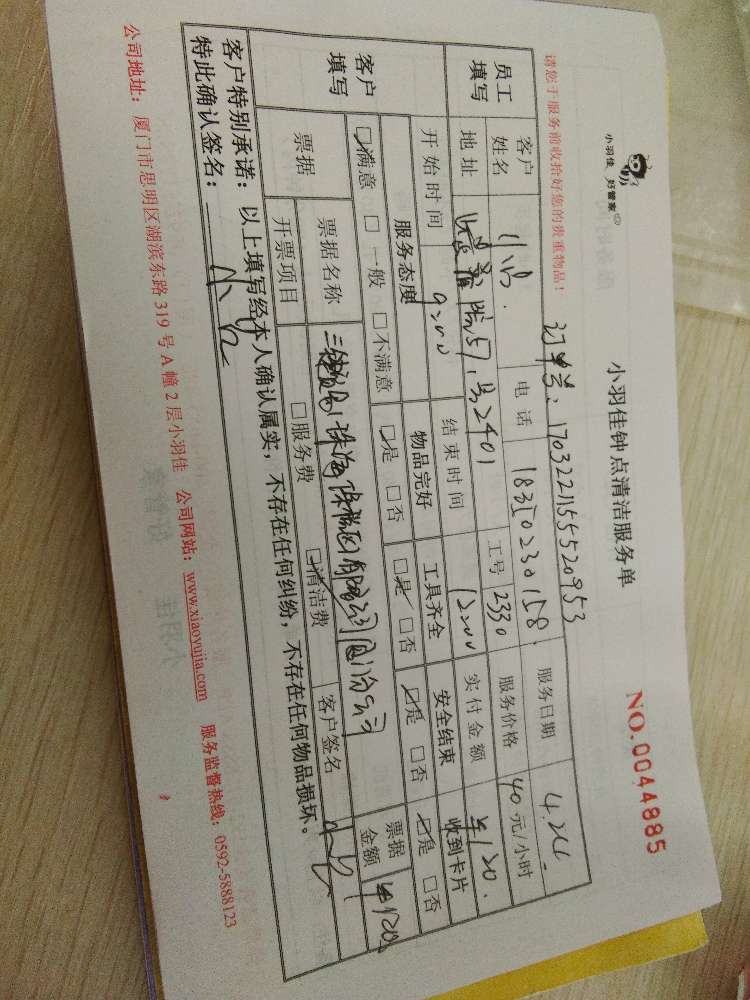 小羽佳 好管家
小羽佳钟点清洁服务单
NO.0044885
请您于服务前收拾好您的贵重物品!
订单号: 1703221155520953
员工填写 客户姓名 电话 18350230158 服务日期 4.24
地址 57号2401 工号 2330 服务价格 40元/小时
开始时间 9:00 结束时间 12:00 实付金额 ¥120.
客户填写 服务态度 物品完好 工具齐全 安全结束 收到卡片
☑满意 □一般 □不满意 ☑是 □否 ☑是 □否 ☑是 □否 ☑是 □否
票据 票据名称 珠海 有限公司厦门分公司 票据金额 ¥120
开票项目 □服务费 ☑清洁费 客户签名
客户特别承诺: 以上填写经本人确认属实,不存在任何纠纷,不存在任何物品损坏。
特此确认签名:
公司地址: 厦门市思明区湖滨东路319号A幢2层小羽佳 公司网站: www.xiaoyujia.com 服务监督热线: 0592-5888123